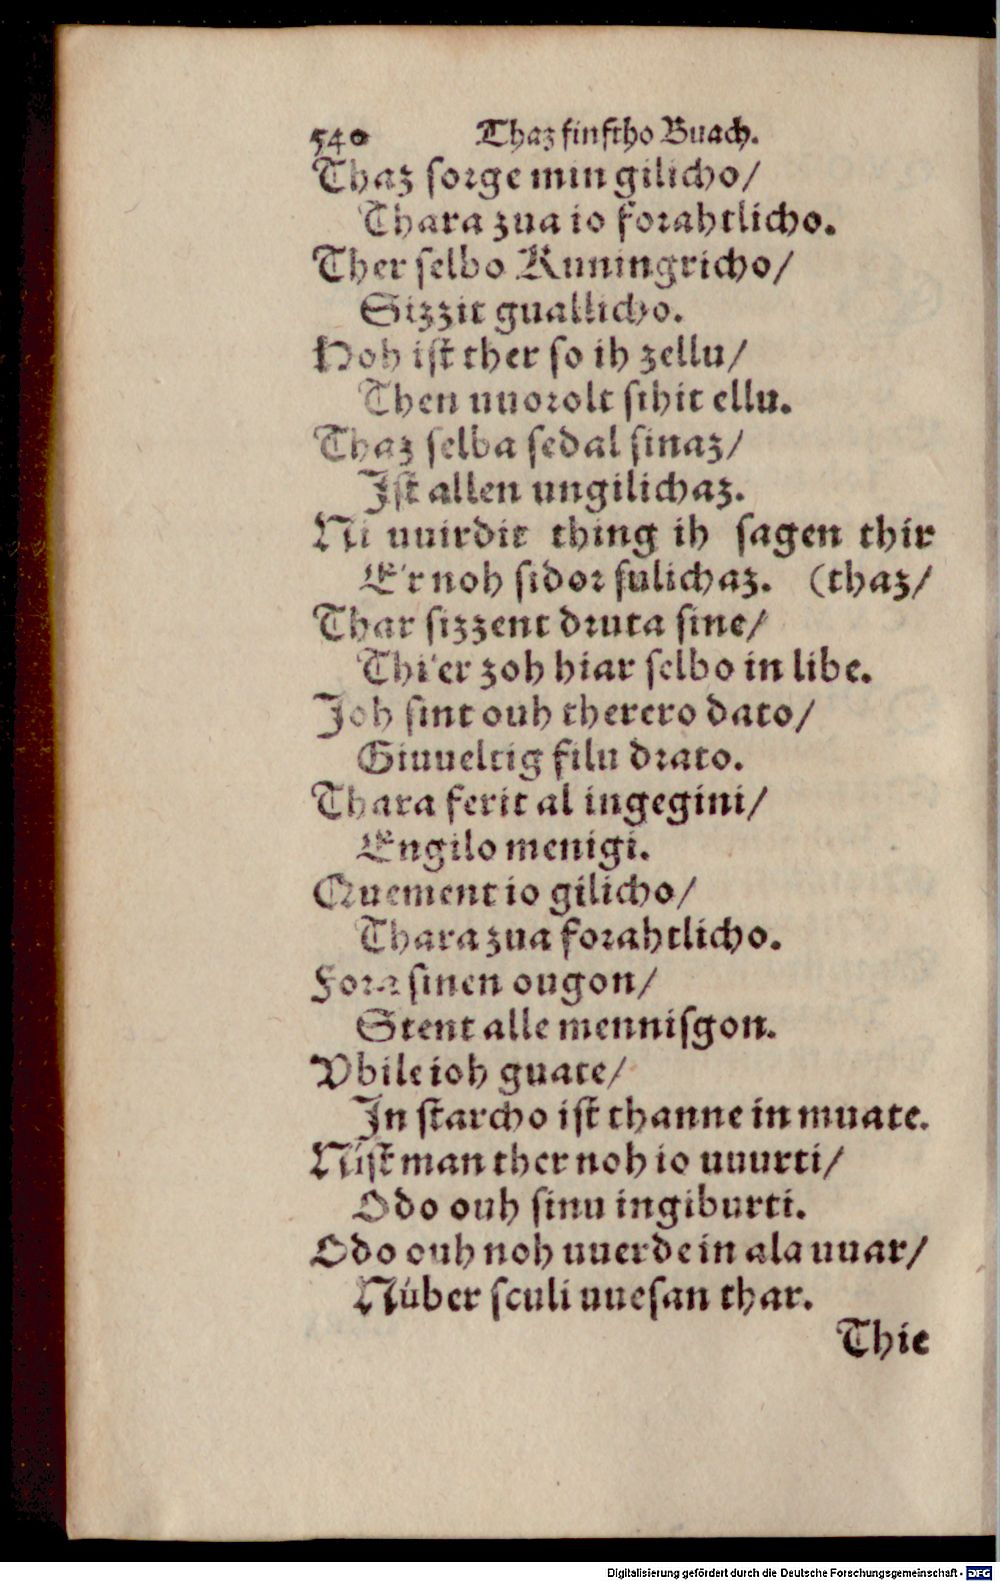 540 Thaz finftho Buach.
Thaz sorge min gilicho/
Thara zua io forahtlicho.
Ther selbo Kuningricho/
Sizzit guallicho.
Hoh ist ther so ih zellu/
Then uuorolt sihit ellu.
Thaz selba sedal sinaz/
Ist allen ungilichaz.
Ni uuirdit thing ih sagen thir
E'r noh sidor sulichaz. (thaz/
Thar sizzent druta sine/
Thi'er zoh hiar selbo in libe.
Joh sint ouh therero dato/
Giuueltig filu drato.
Thara ferit al ingegini/
Engilo menigi.
Quement io gilicho/
Thara zua forahtlicho.
Fora sinen ougon/
Stent alle mennisgon.
Vbile ioh guate/
In starcho ist thanne in muate.
Níst man ther noh io uuurti/
Odo ouh sinu ingiburti.
Odo ouh noh uuerde in ala uuar/
Núber sculi uuesan thar.
Thie
Digitalisierung gefördert durch die Deutsche Forschungsgemeinschaft - DFG